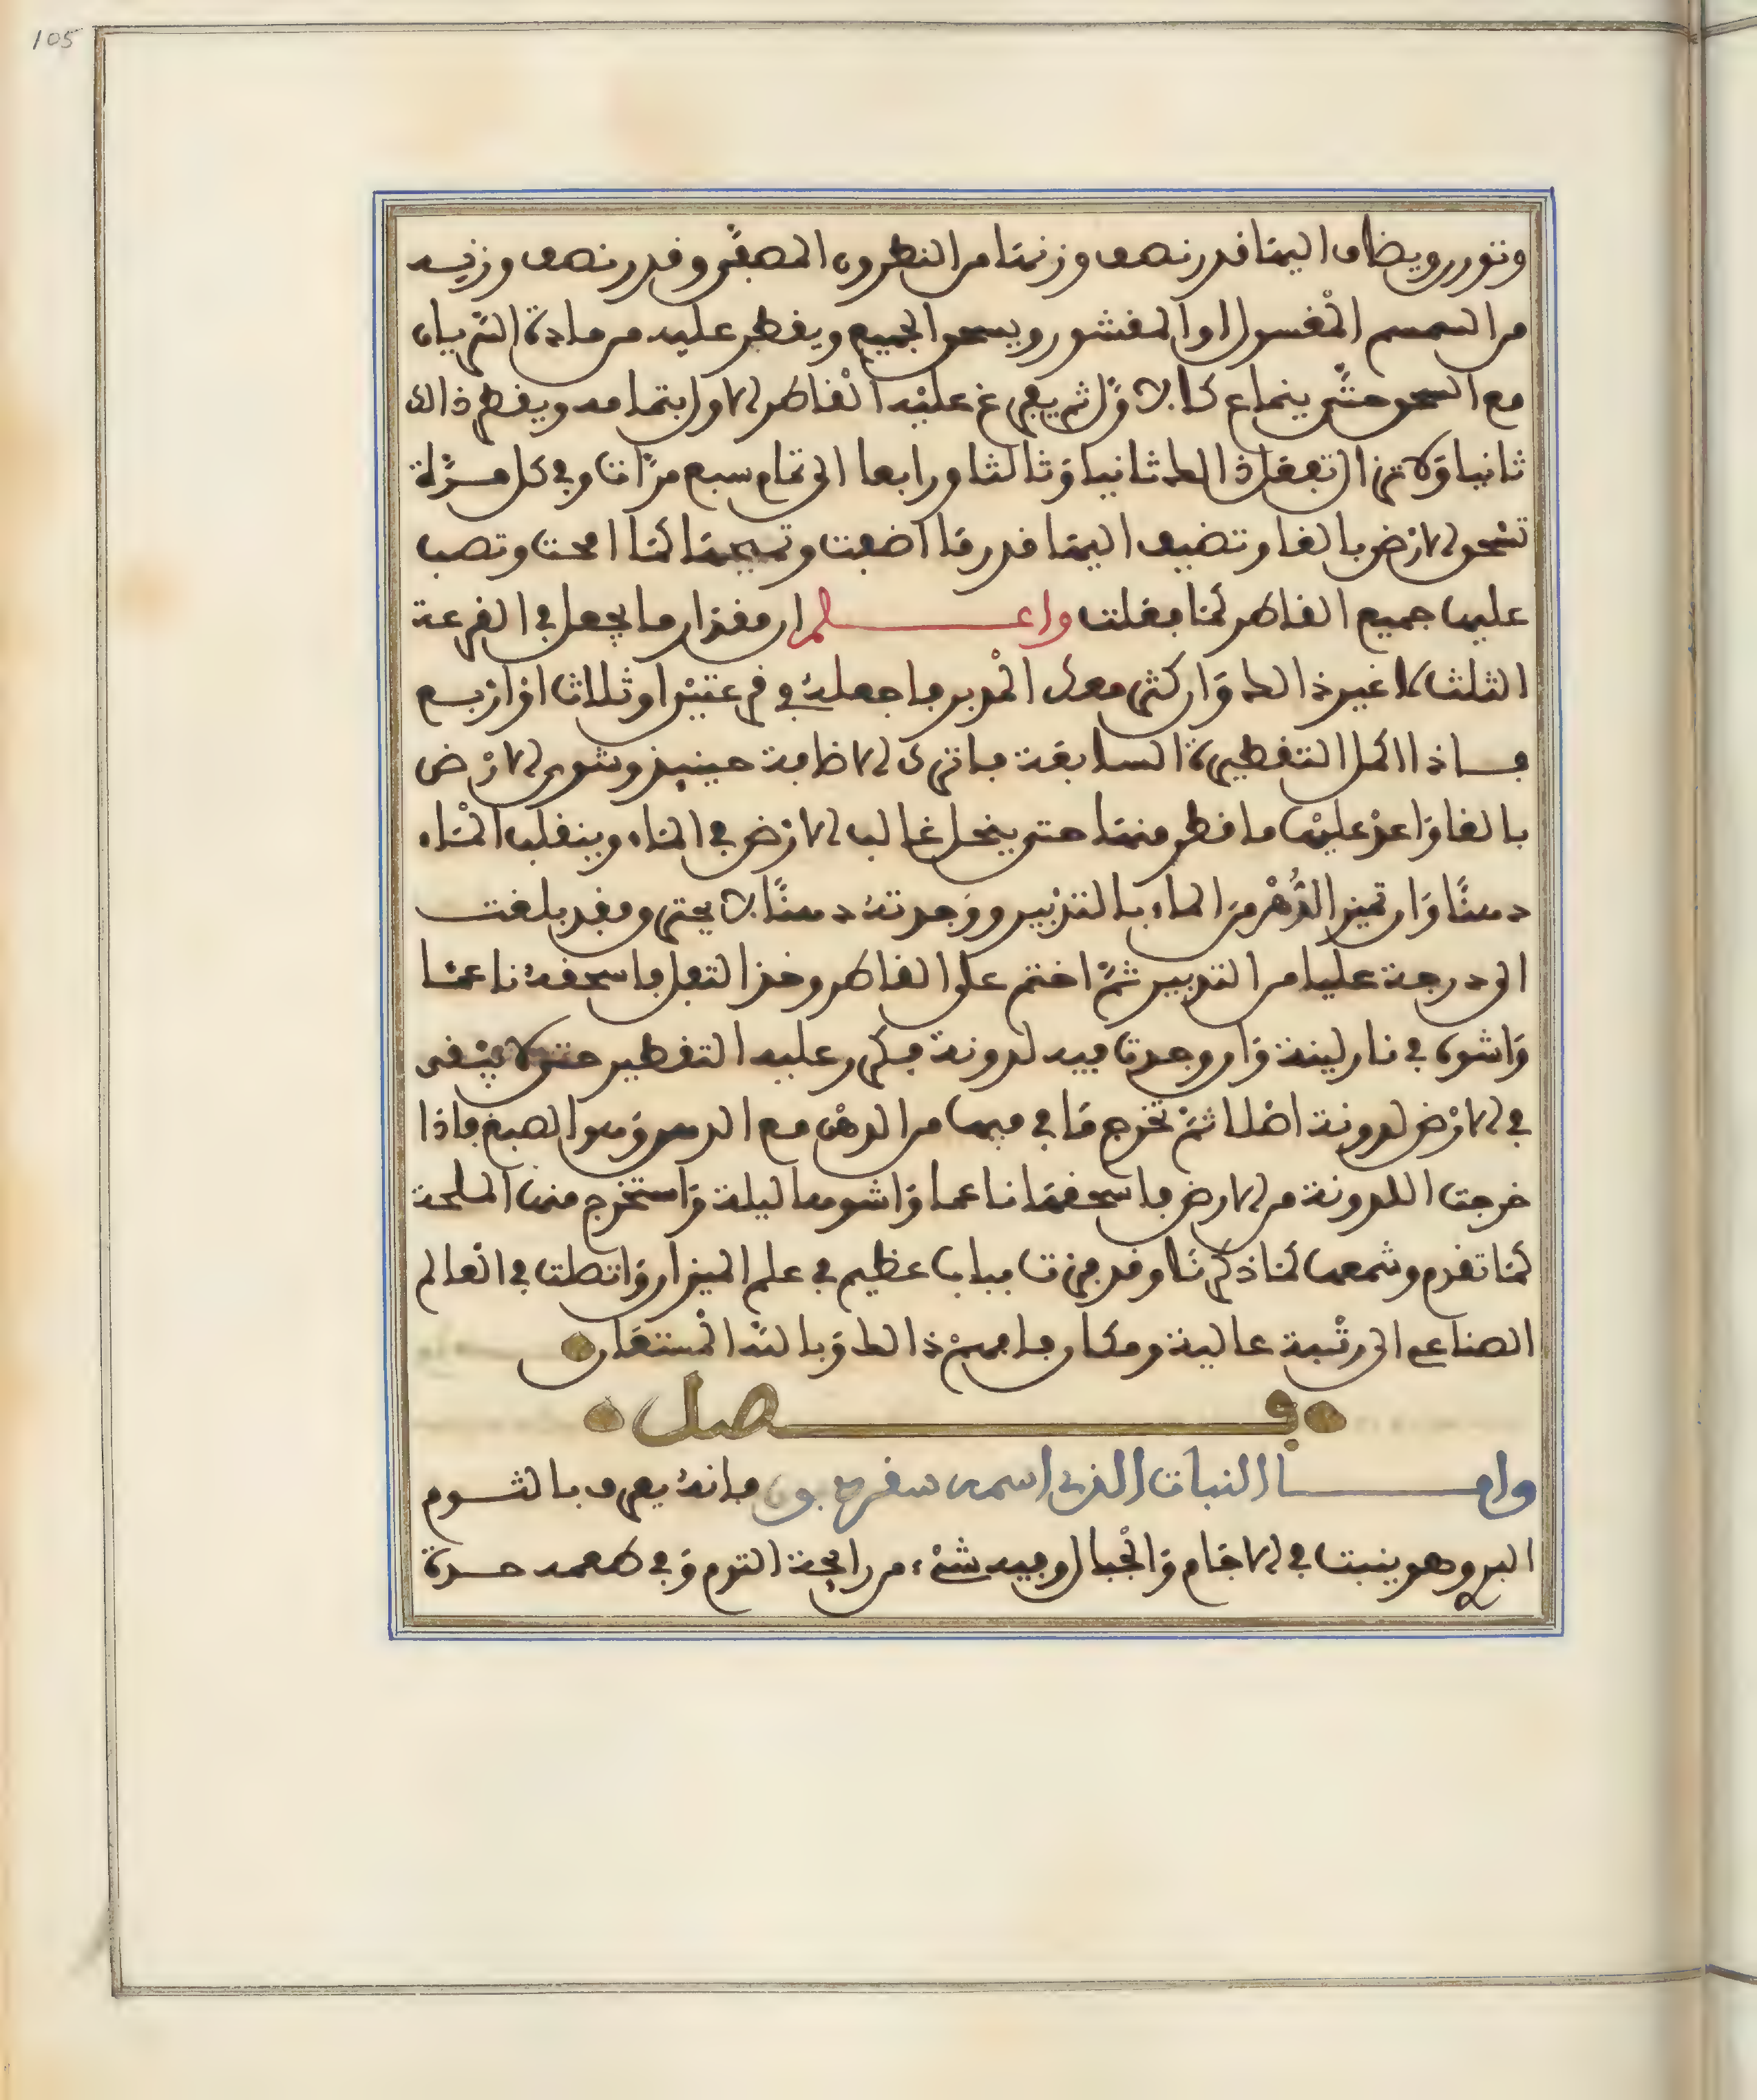 105
وتورد ويضاف اليها قدر نصف وزنها من النطرون المصفى وقدر نصف وزنه
من السمسم المغسول او المقشور ويسحق الجميع ويقطر عليه من مادة الترياق
مع السحق حتى ينماع كالاول ثم يفرغ عليه القاطر الاول بتمامه ويقطر ذالك
ثانيا ولا تزال تفعل ذالك ثانيا وثالثا ورابعا الى تمام سبع مرات وفي كل مرة
تسحق الارض بالغا وتضيف اليها قدر ما اضفت وتسحقها كما امحت وتصب
عليها جميع القاطر كما فعلت واعلم ان مقدار ما يجعل في القرعة
الثلث لا غير ذالك وان كثر معك المدبر فاجعله في قرعتين او ثلاث او اربع
فاذا اكمل التقطيرة السابعة فاترك الاضافة حينيذ وشوى الارض
بالغا واعد عليها ما قطر منها حتى ينحل غالب الارض في الماء وينقلب الماء
دهنا وان تميز الدهن من الماء بالتدبير ووجدته دهنا لا يحترق فقد بلغت
الى درجة عليا من التدبير ثم اختم على القاطر وخذ الثفل فاسحقه ناعما
واشوه في نار لينة وان وجدت فيه لدونة فكرر عليه التقطير حتى لا يبقى
في الارض لدونة اصلا ثم تخرج ما في فيها من الدهن مع الدهن وهو الصبغ فاذا
خرجت اللدونة من الارض فاسحقها ناعما واشوها ليلة واستخرج منها الملحة
كما تقدم وشمعها كما ذكرنا وقد فزت بباب عظيم في علم الميزان واتصلت في العالم
الصناعي الى رتبة عالية ومكان فافهم ذالك وبالله المستعان
فصل
واما النبات الذي اسمه سقرديون فانه يعرف بالثوم
البري وهو ينبت في الاجام والجبال وفيه شيء من رايحة الثوم وفي طعمه حدة